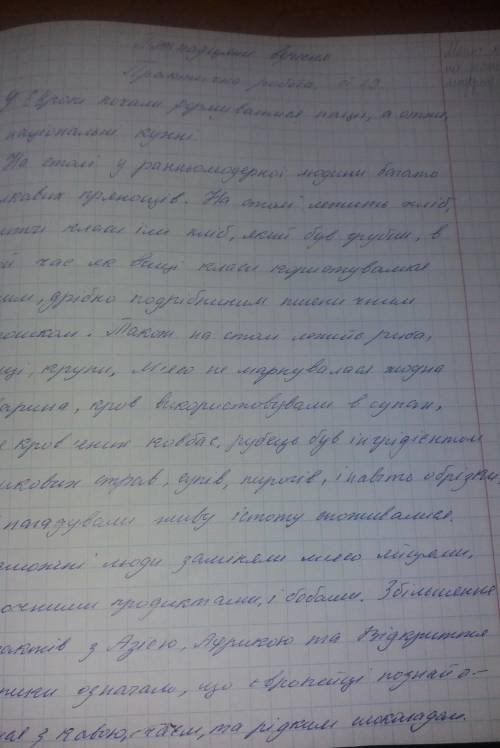 П'ятнадцяте вересня
Практична робота
У Європі почали формуватися нації, а отже,
національні кухні.
На столі у ранньомодерної людини багато
прянощів. На столі лежить хліб,
класи їли хліб, який був грубим, в
час як вищі класи користувалися
дрібно подрібненим пшеничним
Також на столі лежить риба,
крупи, М'ясо не марнувалася жодна
кров використовували в супах,
кров'яних ковбас, рубець був інгрідієнтом
страв, супів, пирогів, і навіть обрізки,
нагадували живу істоту споживалися.
люди заміняли м'ясо яйцями,
продуктами, і бобами. Збільшення
з Азією, Африкою та Відкриття
означало, що європейці познайо-
з кавою, чаєм, та рідким шоколадом.